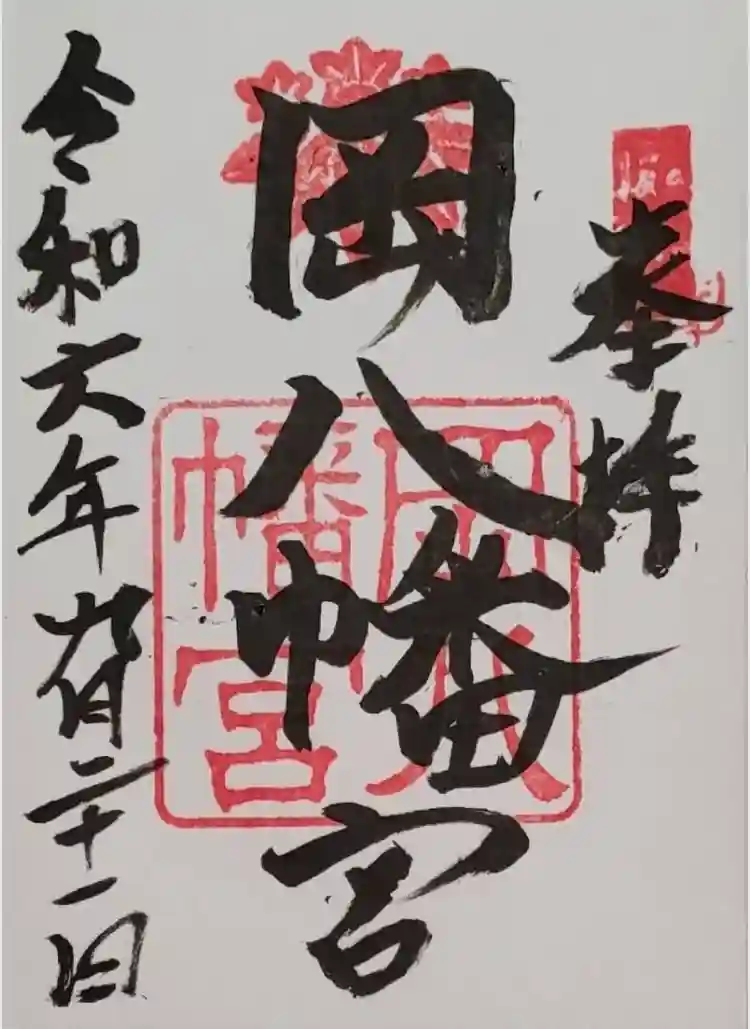 奉拝
岡八幡宮
令和六年九月二十一日
岡八
幡宮